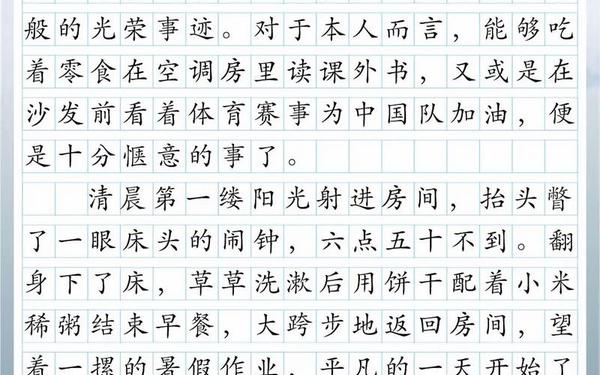 般的光荣事迹。对于本人而言，能够吃
着零食在空调房里读课外书，又或是在
沙发前看着体育赛事为中国队加油，便
是十分惬意的事了。
清晨第一缕阳光射进房间，抬头瞥
了一眼床头的闹钟，六点五十不到。翻
身下了床，草草洗漱后用饼干配着小米
稀粥结束早餐，大跨步地返回房间，望
着一摞的暑假作业，平凡的一天开始了